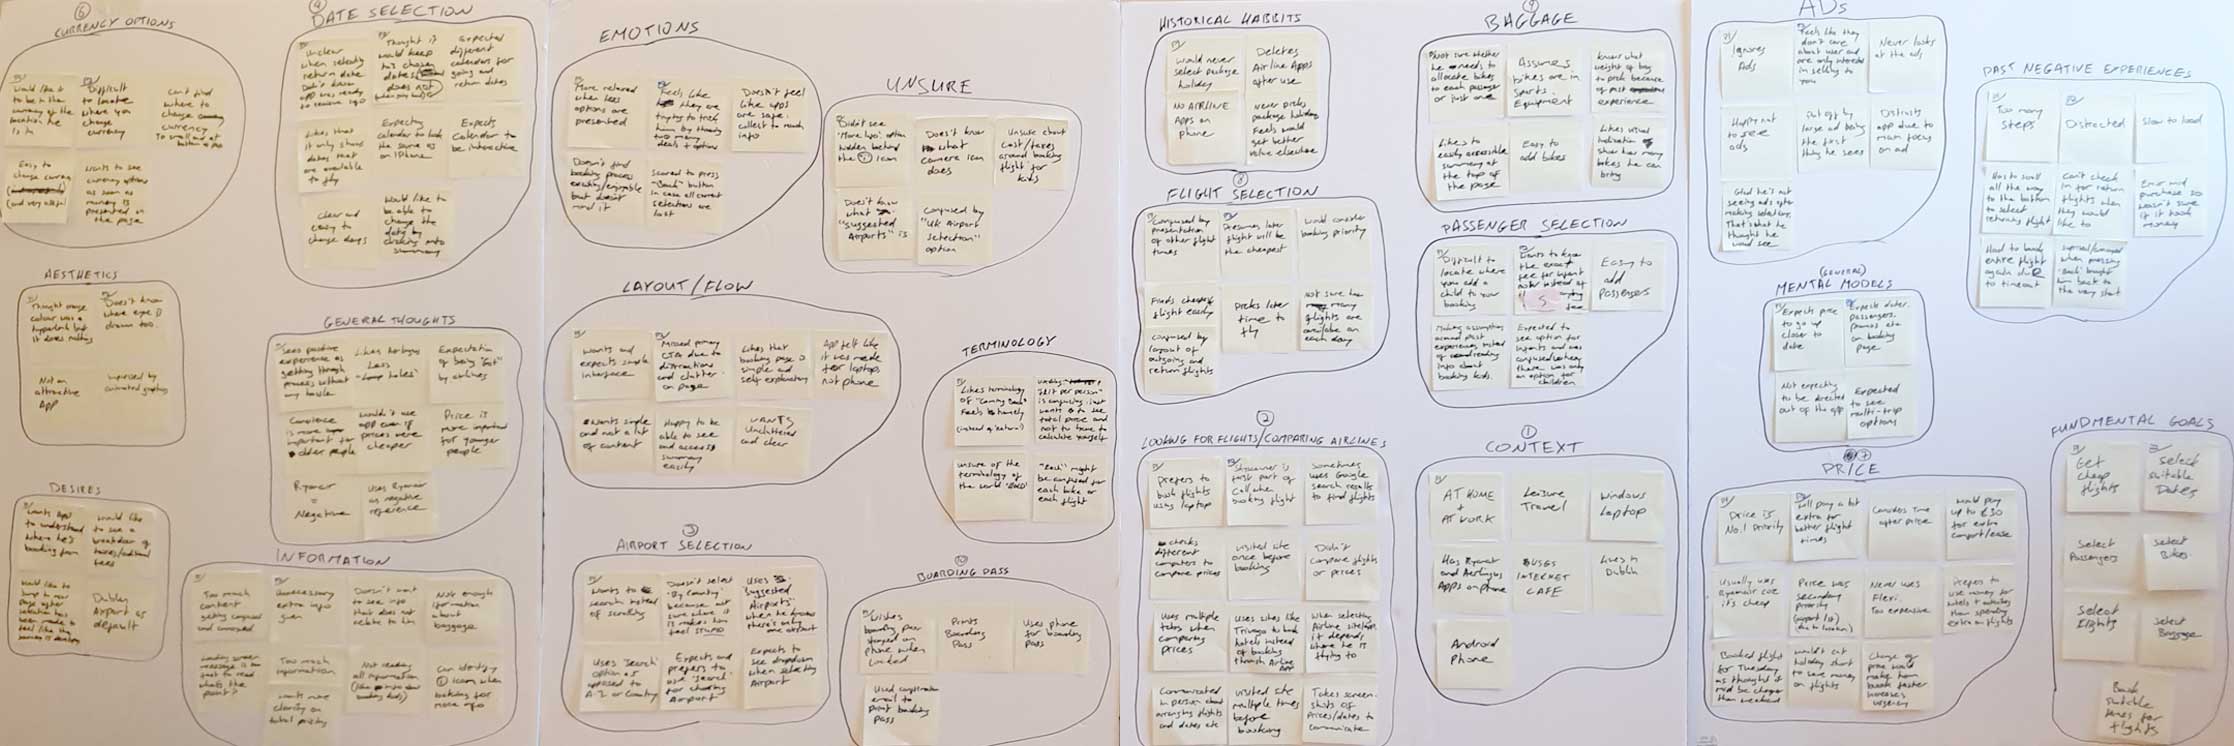 6
CURRENCY OPTIONS
Would like it
to be in the
currency of the
location he
is in
Difficult
to locate
where you
change
currency
Can't find
where to
change
currency
Easy to
change currency
(and very useful)
Wants to see
currency options
as soon as
money is
presented on
the page
AESTHETICS
Thought orange
colour was a
hyperlink but
it does nothing
Doesn't know
where eye is
drawn too.
Not an
attractive
App
animated graphics
DESIRES
Wants App
to understand
where he's
booking from
Would like
to see a
breakdown of
taxes/additional
fees
Dublin
Airport as
default
4
DATE SELECTION
Unclear
when selecting
return date
Didn't know
app was ready
to receive info
Thought it
would keep
his chosen
dates
does not
Expected
different
calendars for
going and
return dates
Likes that
it only shows
dates that
are available
to fly
Expecting
calendar to look
the same as
on iPhone
Expects
Calendar to
be interactive
Clear and
easy to
change days
Would like to
be able to
change the
date by
clicking onto
summary
GENERAL THOUGHTS
Sees positive
experience as
getting through
process without
any hassle
Likes Aerlingus
Less
"loop holes"
Expectation
of being "Got"
by airlines
is more
important for
older people
Wouldn't use
app even if
prices were
cheaper
Price is
more important
for younger
people
Ryanair
=
Negative
Uses Ryanair
as negative
reference
INFORMATION
Too much
content
getting confused
and annoyed
Unnecessary
extra info
given
Doesn't want
to see info
that does not
relate to him
Not enough
information
about
baggage
Loading screen
message is too
fast to read
whats the
point?
Too much
information
wants more
clarity on
total pricing
Not reading
all information
Can identify
icon when
looking for
more info
EMOTIONS
More relaxed
when less
options are
presented
Feels like
they are
trying to trick
him by throwing
too many
deals + options
Doesn't feel
like apps
are safe.
collect to much
info
Doesn't find
booking process
exciting/enjoyable
but doesn't
mind it
Scared to press
"Back" button
in case all current
selections are
lost
UNSURE
Didn't see
'More Info' option
hidden behind
the i icon
Doesn't know
what
camera icon
does
Unsure about
cost/taxes
around booking
flight for
kids
Doesn't know
what
"Suggested
Airports" is
Confused by
"UK Airport
Selection"
option
LAYOUT/FLOW
Wants and
expects simple
interface
Missed primary
CTA due to
distractions
and clutter
on page
Likes that
booking page is
simple and
self explanatory
App felt like
it was made
for laptops
not phone
Wants simple
and not a lot
of content
Happy to be
able to see
and access
summary
easily
WANTS
Uncluttered
and clear
TERMINOLOGY
Likes terminology
of "Coming Back"
Feels homely
(instead of 'return')
"per person"
is confusing. Just
wants to see
total price and
not to have to
calculate yourself
Unsure of the
terminology of
the world
"Each" might
be confused for
each bike or
each flight
3
AIRPORT SELECTION
Wants to
search instead
of scrolling
Doesn't select
'By Country'
because not
sure where it
is makes him
feel STUPID
Uses
'Suggested
Airports'
when he knows
there's only
one airport
Uses 'Search'
option as
opposed to
A-Z or Country
Expects and
prefers to
use 'search'
for choosing
Airport
Expects to
see dropdown
when selecting
Airport
10
BOARDING PASS
Wishes
boarding pass
stayed on
phone when
Locked
Prints
Boarding
Pass
Uses phone
for boarding
pass
Used confirmation
email to
print boarding
pass
HISTORICAL HABBITS
Would never
select package
holiday
Deletes
Airline Apps
after use
NO AIRLINE
Apps on
phone
Never picks
package holiday
Feels would
get better
value elsewhere
8
FLIGHT SELECTION
Confused by
presentation
of other flight
times
Presumes later
flight will be
the cheapest
Would consider
booking priority
Finds cheapest
flight easily
Picks later
time to
fly
Not sure how
many
flights are
available on
each day
Confused by
layout of
outgoing and
return flights
2
LOOKING FOR FLIGHTS/COMPARING AIRLINES
Prefers to
book flights
using laptop
Skyscanner is
first port of
call when
booking flight
Sometimes
uses Google
search results
to find flights
Checks
different
computers to
compare prices
Visited site
once before
booking
Didn't
compare flights
or prices
Uses multiple
tabs when
comparing
prices
Uses sites like
Trivago to book
hotels instead
of booking
through Airline
App
When selecting
Airline
it depends
where he is
flying to
Communicated
in person about
arranging flights
and dates etc
Visited site
multiple times
before
booking
Takes screen-
shots of
Prices/dates to
communicate
9
BAGGAGE
Not sure whether
he needs to
allocate bikes
to each passenger
or just one
Assumes
bikes are in
Sports
Equipment
Knows what
weight of bag
to pick because
of past
experience
Likes
easily accessible
summary at
the top of
the page
Easy to
add bikes
Likes visual
indication of
show how many
bikes he can
bring
PASSENGER SELECTION
Difficult to
locate where
you add a
child to your
booking
Wants to know
the exact
fee for infant
instead of
5
Easy to
add
Passengers
Making assumptions
around past
experiences instead
of reading
info about
booking kids.
Expected to
see option for
infants and was
confused
there was only
an option for
children
1
CONTEXT
AT HOME
+
AT WORK
Leisure
Travel
Windows
Laptop
Has Ryanair
and Aerlingus
Apps on phone
USES
INTERNET
CAFE
Lives in
Dublin
Android
Phone
ADs
Ignores
Ads
Feels like they
don't care
about user and
are only interested
in selling to
you
Never looks
at the ads
Happy not
to see
ads
Put off by
large ad being
the first
thing he sees
Distrusts
app due to
main focus
on ad
Glad he's not
seeing ads after
making selections.
That's what he
thought he
would see
PAST NEGATIVE EXPERIENCES
Too many
Steps
Distracted
Slow to load
Has to scroll
all the way
to the bottom
to select
returning flight
Can't check
in for return
flights when
they would
like to
Error mid
purchase so
wasn't sure
if it took
money
Had to book
entire flight
again due
to timeout
when pressing
'Back' bought
him back to
the very start
(GENERAL)
MENTAL MODELS
Expects price
to go up
closer to
date
Expects dates.
passengers.
promos etc
on booking
page
Not expecting
to be directed
out of the app
Expected
to see
multi-trip
options
7
PRICE
Price is
No.1 Priority
Will pay a bit
extra for
better flight
times
Considers Time
after price
Would pay
up to €30
for extra
comfort/ease
Usually uses
Ryanair coz
it's cheap
Price was
secondary
priority
(airport 1st)
(due to location)
Never uses
Flexi.
Too expensive
Prefers to
use money for
hotels + activities
than spending
extra on flights
Booked flight
for Tuesday
as thought it
would be cheaper
than weekend
Wouldn't cut
holiday short
to save money
on flights
Change of
price would
make him
book faster
increases
urgency
FUNDMENTAL GOALS
Get
Cheap
flights
Select
Suitable
Dates
Select
Passengers
Select
Bikes
Select
Flights
Select
Baggage
Book
suitable
times for
flights